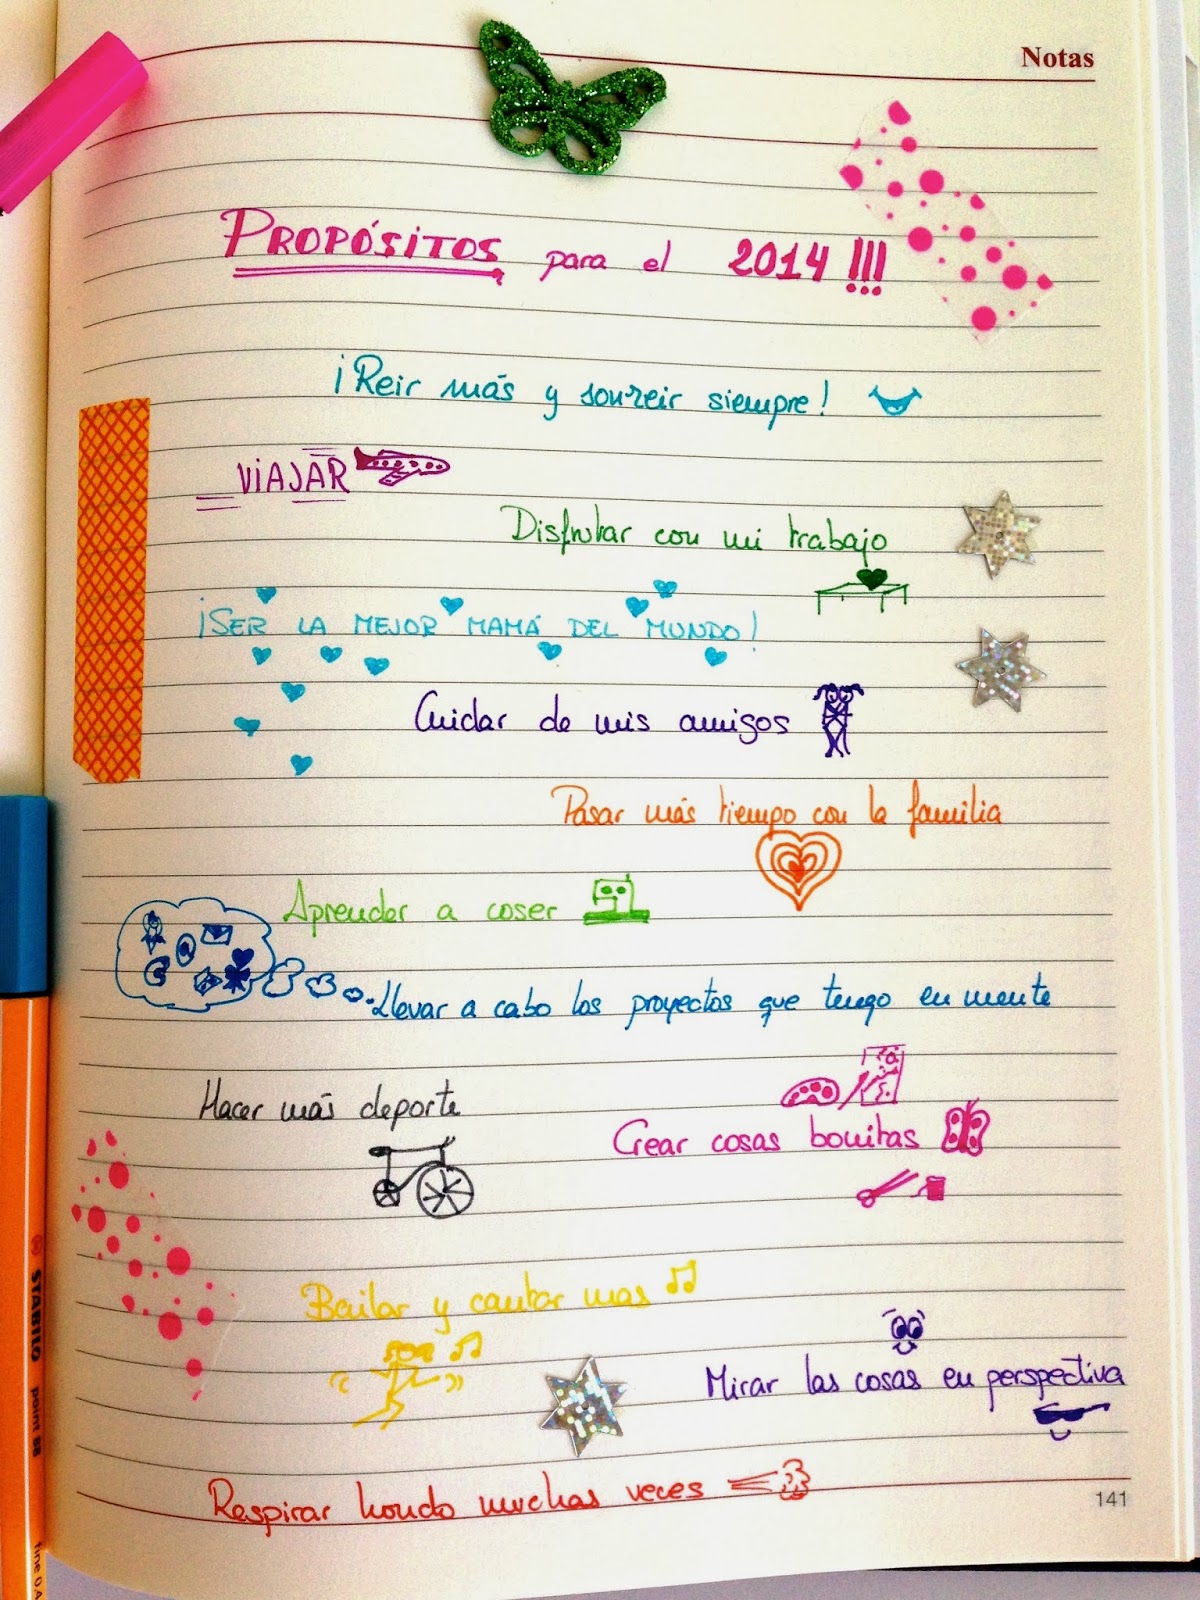 Notas
PROPÓSITOS para el 2014 !!!
¡Reir más y sonreir siempre!
VIAJAR
Disfrutar con mi trabajo
¡SER LA MEJOR MAMÁ DEL MUNDO!
Cuidar de mis amigos
Pasar más tiempo con la familia
Aprender a coser
Llevar a cabo los proyectos que tengo en mente
Hacer más deporte
Crear cosas bonitas
Bailar y cantar mas
Mirar las cosas en perspectiva
Respirar hondo muchas veces
141
STABILO point 88
fine 0,4